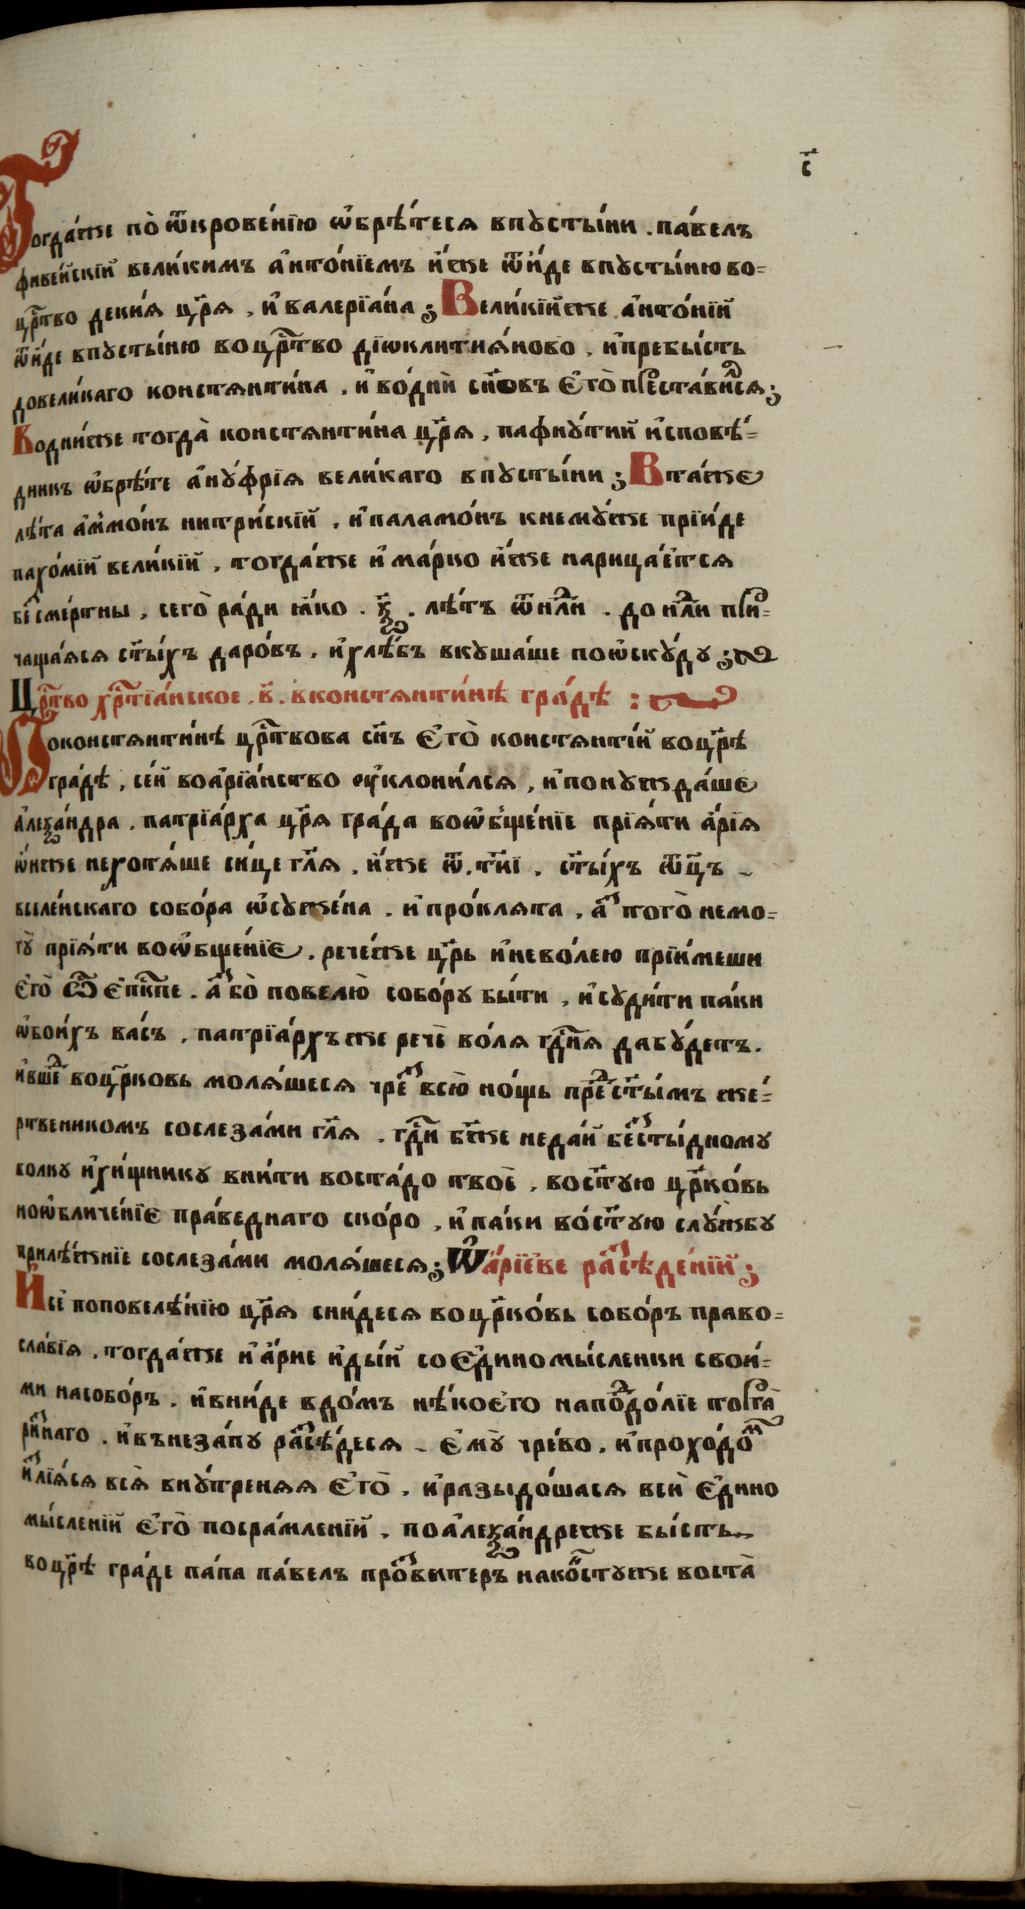 с҃
Тогда́же по̀ ѿкровенїю ѡ҆брѣ́теся впꙋсты́ни . па́велъ
фиве́йскїй вели́кимъ а҆нто́нїемъ и҆́же ѿи́де впꙋсты́ню во-
црⷭ҇тво декия̀ цр҃я̀ , и҆ валерїа́на ; Вели́кїйже а҆нто́нїй
ѿи́де впꙋсты́ню воцрⷭ҇тво дїѡклития́ново , и҆пребы́сть
довели́каго констянти́на , и҆ во́дни сн҃овъ є҆го̀ преста́вися ;
Водни́же тогда̀ констянти́на цр҃я̀ , пафнꙋ́тий и҆сповѣ́-
дникъ ѡ҆брѣ́те а҆нꙋ́фрїя вели́каго впꙋсты́ни ; Вта́же
лѣ́та а҆ммо́нъ нитри́скїй , и҆паламо́нъ кнемꙋ́же прїи́де
пахо́мїй вели́кїй , тогда́же и҆ ма́рко и҆́же нарица́ется
бесме́ртны , сего̀ ра́ди ꙗ҆́ко . ѯ҃ . лѣ́тъ ѿ нⷣли . до нⷣли при-
чаща́яся ст҃ы́хъ даро́въ , и҆хлѣ́бъ вкꙋша́ше поѡ҆скꙋ́дꙋ ;
Црⷭ҇тво хрⷭ҇тїа́нское . в҃ . вконстянти́нѣ гра́дѣ :
Поконстянти́нѣ црⷭ҇твова сн҃ъ є҆го̀ констянті́й воцр҃ѣ̀
гра́дѣ , се́й воа҆рїа́нство ᲂу҆клони́лся , и҆понꙋжда́ше
а҆леѯа́ндра , патрїа́рха цр҃я̀ гра́да воѡ҆бще́нїе прїя́ти а҆́рїя
ѡ҆́нже нехотя́ше си́це гл҃я , и҆́же ѿ . тн҃і . ст҃ы́хъ ѻ҆ц҃ъ
вселе́нскаго собо́ра ѡ҆сꙋжде́на , и҆ про́клята , а҆ того̀ немо-
гꙋ̀ прїя́ти воѡ҆бще́нїе . рече́же цр҃ь и҆нево́лею прїи́меши
є҆го̀ ѽ є҆пⷭ҇кпе . а҆́бо повелю̀ собо́рꙋ бы́ти , и҆сꙋди́ти па́ки
ѡ҆бои́хъ ва́съ , патрїа́рхъ же речѐ во́ля гдⷭ҇ня дабꙋ́детъ .
и҆вше́ воцр҃ковь моля́шеся чре́ всю̀ но́щь престⷭ҇ы́мъ же́-
ртвенникомъ сослеза́ми гл҃я , гдⷭ҇и бж҃е неда́й бесты́дномꙋ
волкꙋ и҆хи́щникꙋ вни́ти воста́до твоѐ , вост҃ꙋ́ю цр҃ко́вь
ноѡ҆бличе́нїе пра́веднаго ско́ро , и҆ па́ки во́ст҃ꙋю слꙋ́жбꙋ
прилѣ́жнїе сослеза́ми моля́шеся ; Ѡ҆ а҆́рїеве расѣде́нїй ;
И҆се поповелѣ́нїю цр҃я̀ сни́деся воцр҃ко́вь собо́ръ право-
сла́вїя , тогда́же и҆ а҆́рие и҆ды́й соє҆диномы́сленики свои́-
ми насобо́ръ , и҆вни́де вдо́мъ нѣ́коего напо́долїе тогра̀
ри́наго , и҆внеза́пꙋ расѣ́деся є҆мꙋ̀ чре́во , и҆проходо́м
и҆лїя́ся вся̀ внꙋ́треняя є҆го̀ , и҆разыдо́шася всѝ є҆дино
мы́сленїй є҆го̀ посра́мленїй , поа҆леѯа́ндреже бы́сть
воцр҃ѣ̀ гра́де па́па па́велъ про́звитеръ накостꙋже воста̀